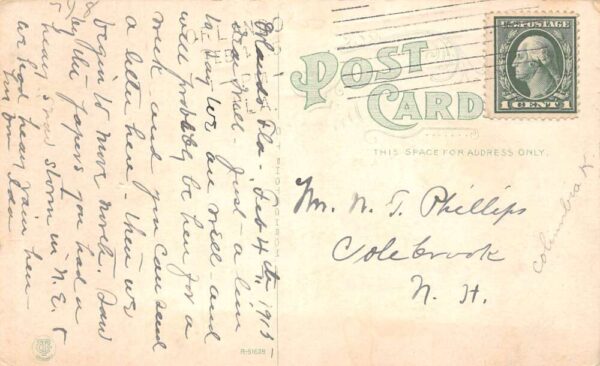 Orlando Fla - Feb 4th, 1915
Dear Will - Just a line
to say we are well - and
will probably be here for a
week and you can send
a letter here - then we
begin to move north. Saw
by the papers you had a
heavy snow storm in N.E. &
we had heavy rain here
POST
CARD
THIS SPACE FOR ADDRESS ONLY.
U.S. POSTAGE
1 CENT 1
Mr. N. T. Phillips
Colebrook
N. H.
Columbia
R-51628